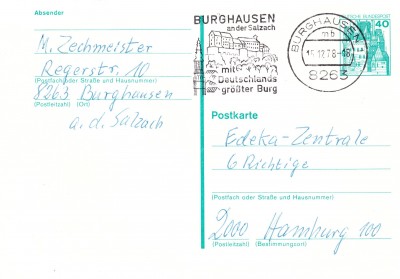 Absender
M. Zechmeister
Regerstr. 10
(Postfach oder Straße und Hausnummer)
8263 Burghausen
(Postleitzahl) (Ort)
a. d. Salzach
BURGHAUSEN
an der Salzach
mit
Deutschlands
größter Burg
BURGHAUSEN
mb
15.12.78-18
8263
DEUTSCHE BUNDESPOST
40
Postkarte
Edeka-Zentrale
6 Richtige
(Postfach oder Straße und Hausnummer)
2000 Hamburg 100
(Postleitzahl) (Bestimmungsort)